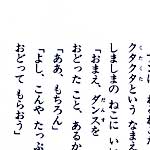 クタクタという なまえ
しましまの ねこに いい
「おまえ、ダンスを
おどった こと、あるか
「ああ、もちろん」
「よし、こんや たっぷ
おどって もらおう」